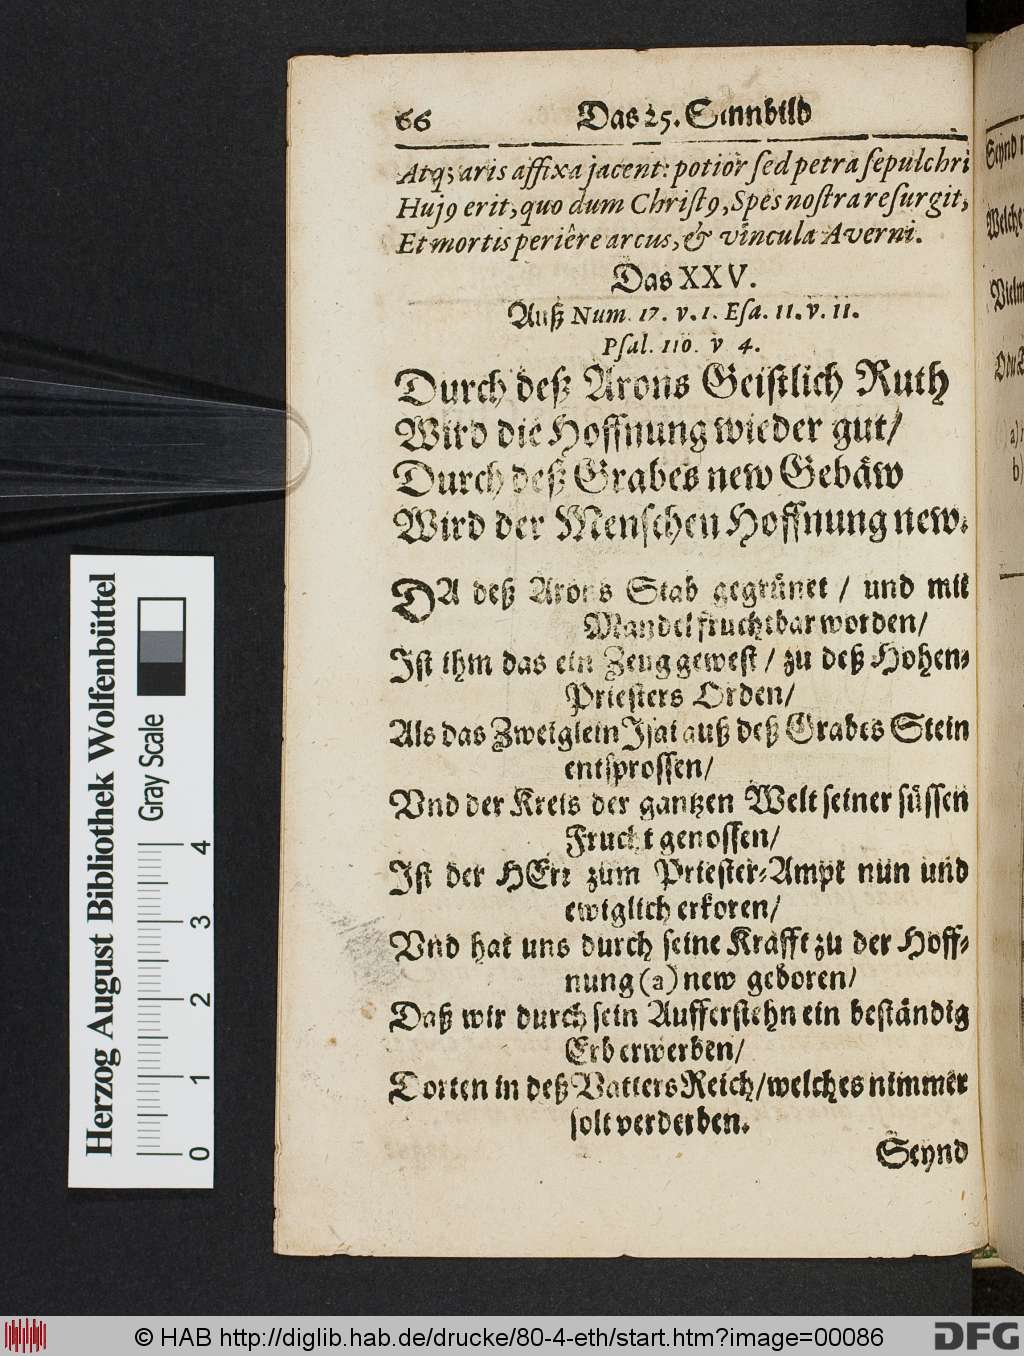 66 Das 25. Sinnbild
Atq; aris affixa jacent: potior sed petra sepulchri
Huj9 erit, quo dum Christ9, Spes nostra resurgit,
Et mortis periêre arcus, & vincula Averni.
Das XXV.
Auß Num. 17. v. 1. Esa. 11. v. 11.
Psal. 110. v 4.
Durch deß Arons Geistlich Ruth
Wird die Hoffnung wieder gut/
Durch deß Grabes new Gebäw
Wird der Menschen Hoffnung new.
DA deß Arons Stab gegrünet / und mit
Mandel fruchtbar worden/
Ist ihm das ein Zeug gewest / zu deß Hohen-
Priesters Orden/
Als das Zweiglein Isai auß deß Grabes Stein
entsprossen/
Vnd der Kreis der gantzen Welt seiner süssen
Frucht genossen/
Ist der HErr zum Priester-Ampt nun und
ewiglich erkoren/
Vnd hat uns durch seine Krafft zu der Hoff-
nung (a) new geboren/
Daß wir durch sein Aufferstehn ein beständig
Erb erwerben/
Dorten in deß Vatters Reich/welches nimmer
solt verderben.
Seynd
Seynd
Welche
Vielm
a)
b)
Herzog August Bibliothek Wolfenbüttel
Gray Scale
0 1 2 3 4
© HAB http://diglib.hab.de/drucke/80-4-eth/start.htm?image=00086
DFG